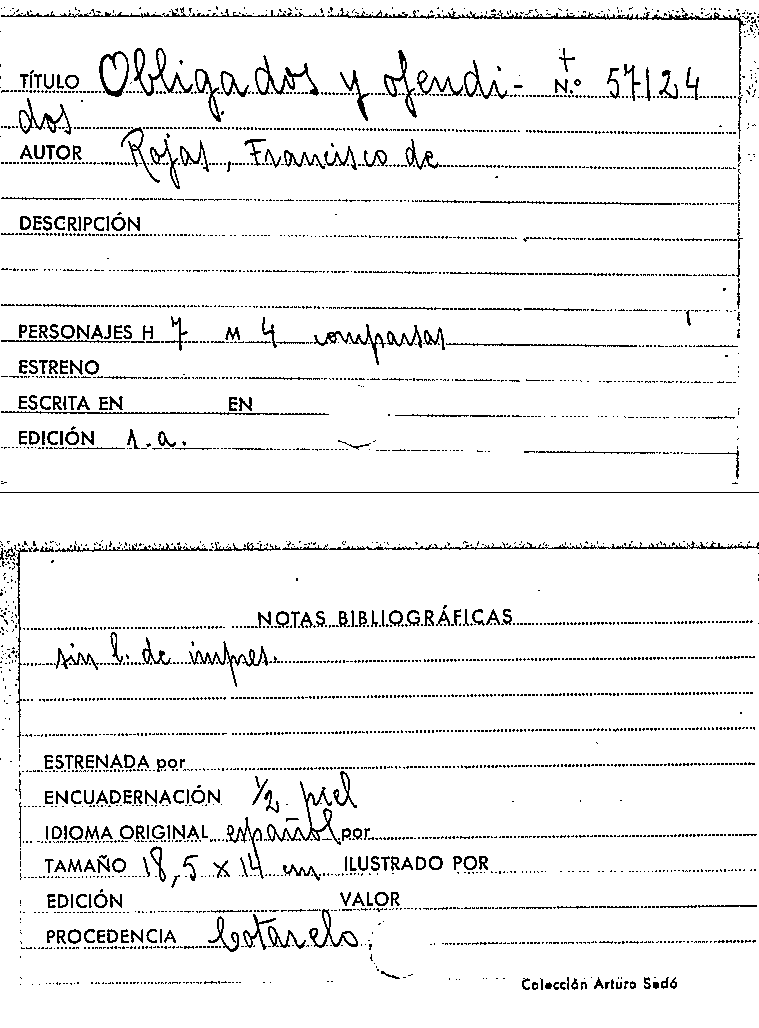 TÍTULO Obligados y ofendi- N.º 57124
dos
AUTOR Rojas, Francisco de
DESCRIPCIÓN
PERSONAJES H 7 M 4 comparsas
ESTRENO
ESCRITA EN EN
EDICIÓN s.a.
NOTAS BIBLIOGRÁFICAS
sin l. de impres.
ESTRENADA por
ENCUADERNACIÓN 1/2 piel
IDIOMA ORIGINAL español por
TAMAÑO 18,5 x 14 cm ILUSTRADO POR
EDICIÓN VALOR
PROCEDENCIA Cotarelo
Colección Arturo Sedó